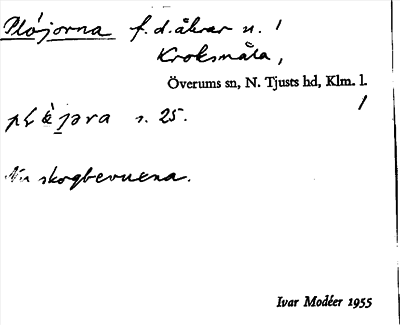 Plöjorna f. d. åkrar u. /
Kroksmåla,
Överums sn, N. Tjusts hd, Klm. l.
/
s. 25.
Nu skogbevuxna.
Ivar Modéer 1955